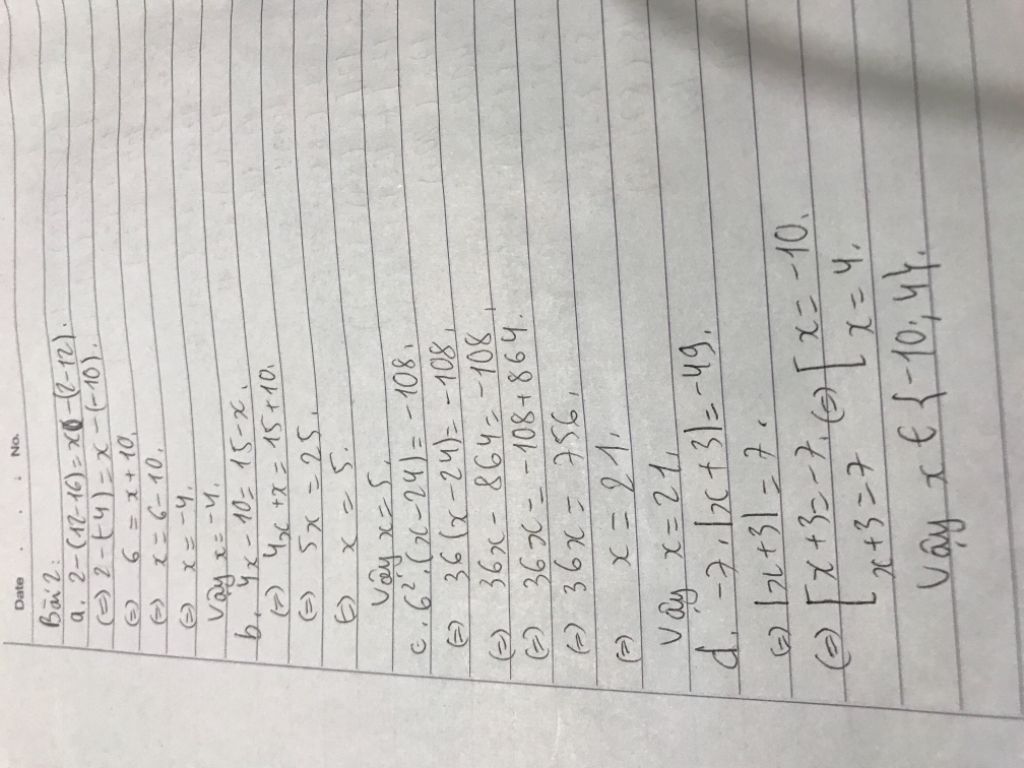 Date . . . No.
Bài 2:
a. 2-(12-16)=x-(2-12).
(=) 2-(-4)=x-(-10).
(=) 6 = x+10.
(=) x=6-10.
(=) x=-4.
Vậy x=-4.
b. 4x-10=15-x.
(=) 4x+x=15+10.
(=) 5x=25.
(=) x=5.
Vậy x=5.
c. 6².(x-24)=-108.
(=) 36(x-24)=-108.
(=) 36x-864=-108.
(=) 36x=-108+864.
(=) 36x=756.
(=) x=21.
Vậy x=21.
d. -7.|x+3|=-49.
(=) |x+3|=7.
(=) [x+3=-7. (=) [x=-10.
[x+3=7 [x=4.
Vậy x∈{-10;4}.